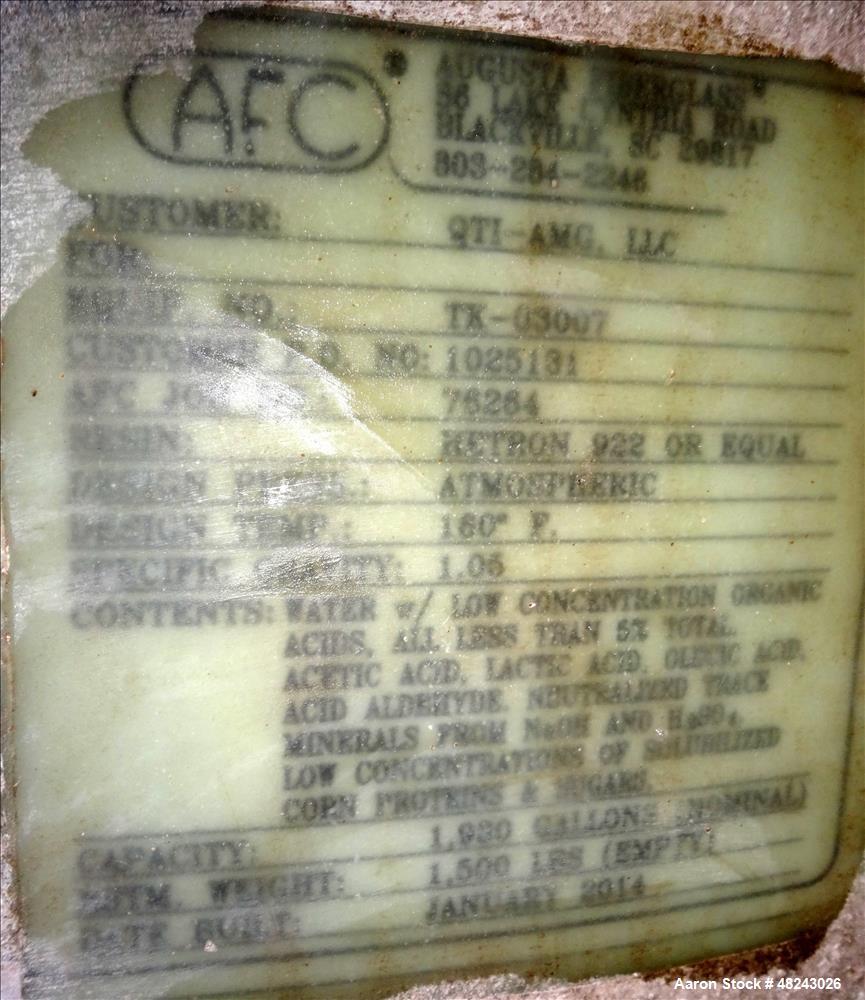 AFC
AUGUSTA FIBERGLASS
LAKE CYNTHIA ROAD
BLACKVILLE, SC 29817
803-284-2246
CUSTOMER: QTI-AMG, LLC
FOR:
EQUIP. NO.: TK-03007
CUSTOMER P.O. NO: 1025131
AFC JOB 76264
RESIN: HETRON 922 OR EQUAL
DESIGN PRES.: ATMOSPHERIC
DESIGN TEMP.: 160° F.
SPECIFIC GRAVITY: 1.06
CONTENTS: WATER w/ LOW CONCENTRATION ORGANIC
ACIDS, ALL LESS THAN 5% TOTAL.
ACETIC ACID, LACTIC ACID, ACID,
ACID ALDEHYDE, NEUTRALIZED TRACE
MINERALS FROM NaOH AND H₂SO₄,
LOW CONCENTRATIONS OF SOLUBILIZED
CORN PROTEINS & SUGARS.
CAPACITY: 1,930 GALLONS (NOMINAL)
ESTM. WEIGHT: 1,500 LBS (EMPTY)
DATE BUILT: JANUARY 2014
Aaron Stock # 48243026